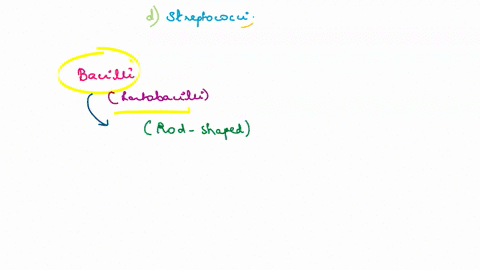 d) Streptococci.
Bacilli
(Lactobacilli)
(Rod-shaped)